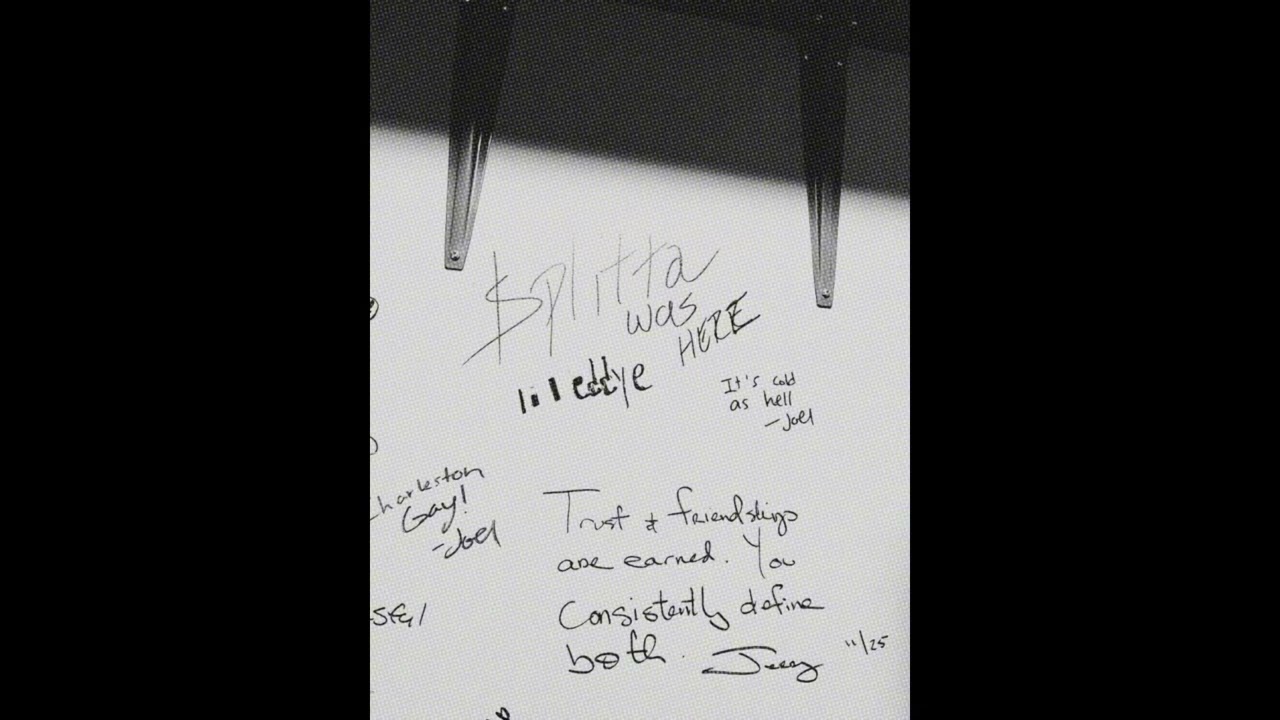 $plitta
was
HERE
lil eddye
It's cold
as hell
-Joel
Charleston
Gay!
-Joel
Trust & friendships
are earned. You
Consistently define
both.
11/25